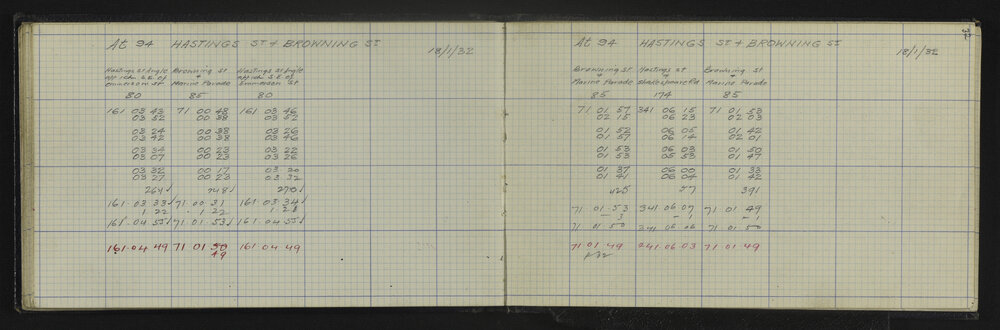 At 94 HASTINGS ST + BROWNING ST
18/1/32
Hastings St Angle Browning St Hastings St Angle
opp rly S.E. of + opp rly S.E. of
Emmerson St Marine Parade Emmerson St
80 85 80
161 03 43 71 00 48 161 03 46
03 52 00 38 03 52
03 24 00 38 03 26
03 42 00 38 03 46
03 34 00 23 03 22
03 07 00 23 03 26
03 32 00 17 03 20
03 27 00 23 03 32
264 248 270
161 03 33 71 00 31 161 03 34
1 22 1 22 1 21
161 04 55 71 01 53 161 04 55
161 04 49 71 01 50 161 04 49
49
32
At 94 HASTINGS ST + BROWNING ST
18/1/32
Browning St Hastings St Browning St
+ + +
Marine Parade Shakespeare Rd Marine Parade
85 174 85
71 01 57 341 06 15 71 01 53
02 15 06 23 02 03
01 52 06 05 01 42
01 57 06 14 02 01
01 53 06 03 01 50
01 53 05 53 01 47
01 37 06 00 01 33
01 41 06 04 01 42
425 57 391
71 01 53 341 06 07 71 01 49
- 3 - 1 - 1
71 01 50 341 06 06 71 01 50
71 01 49 341 06 03 71 01 49